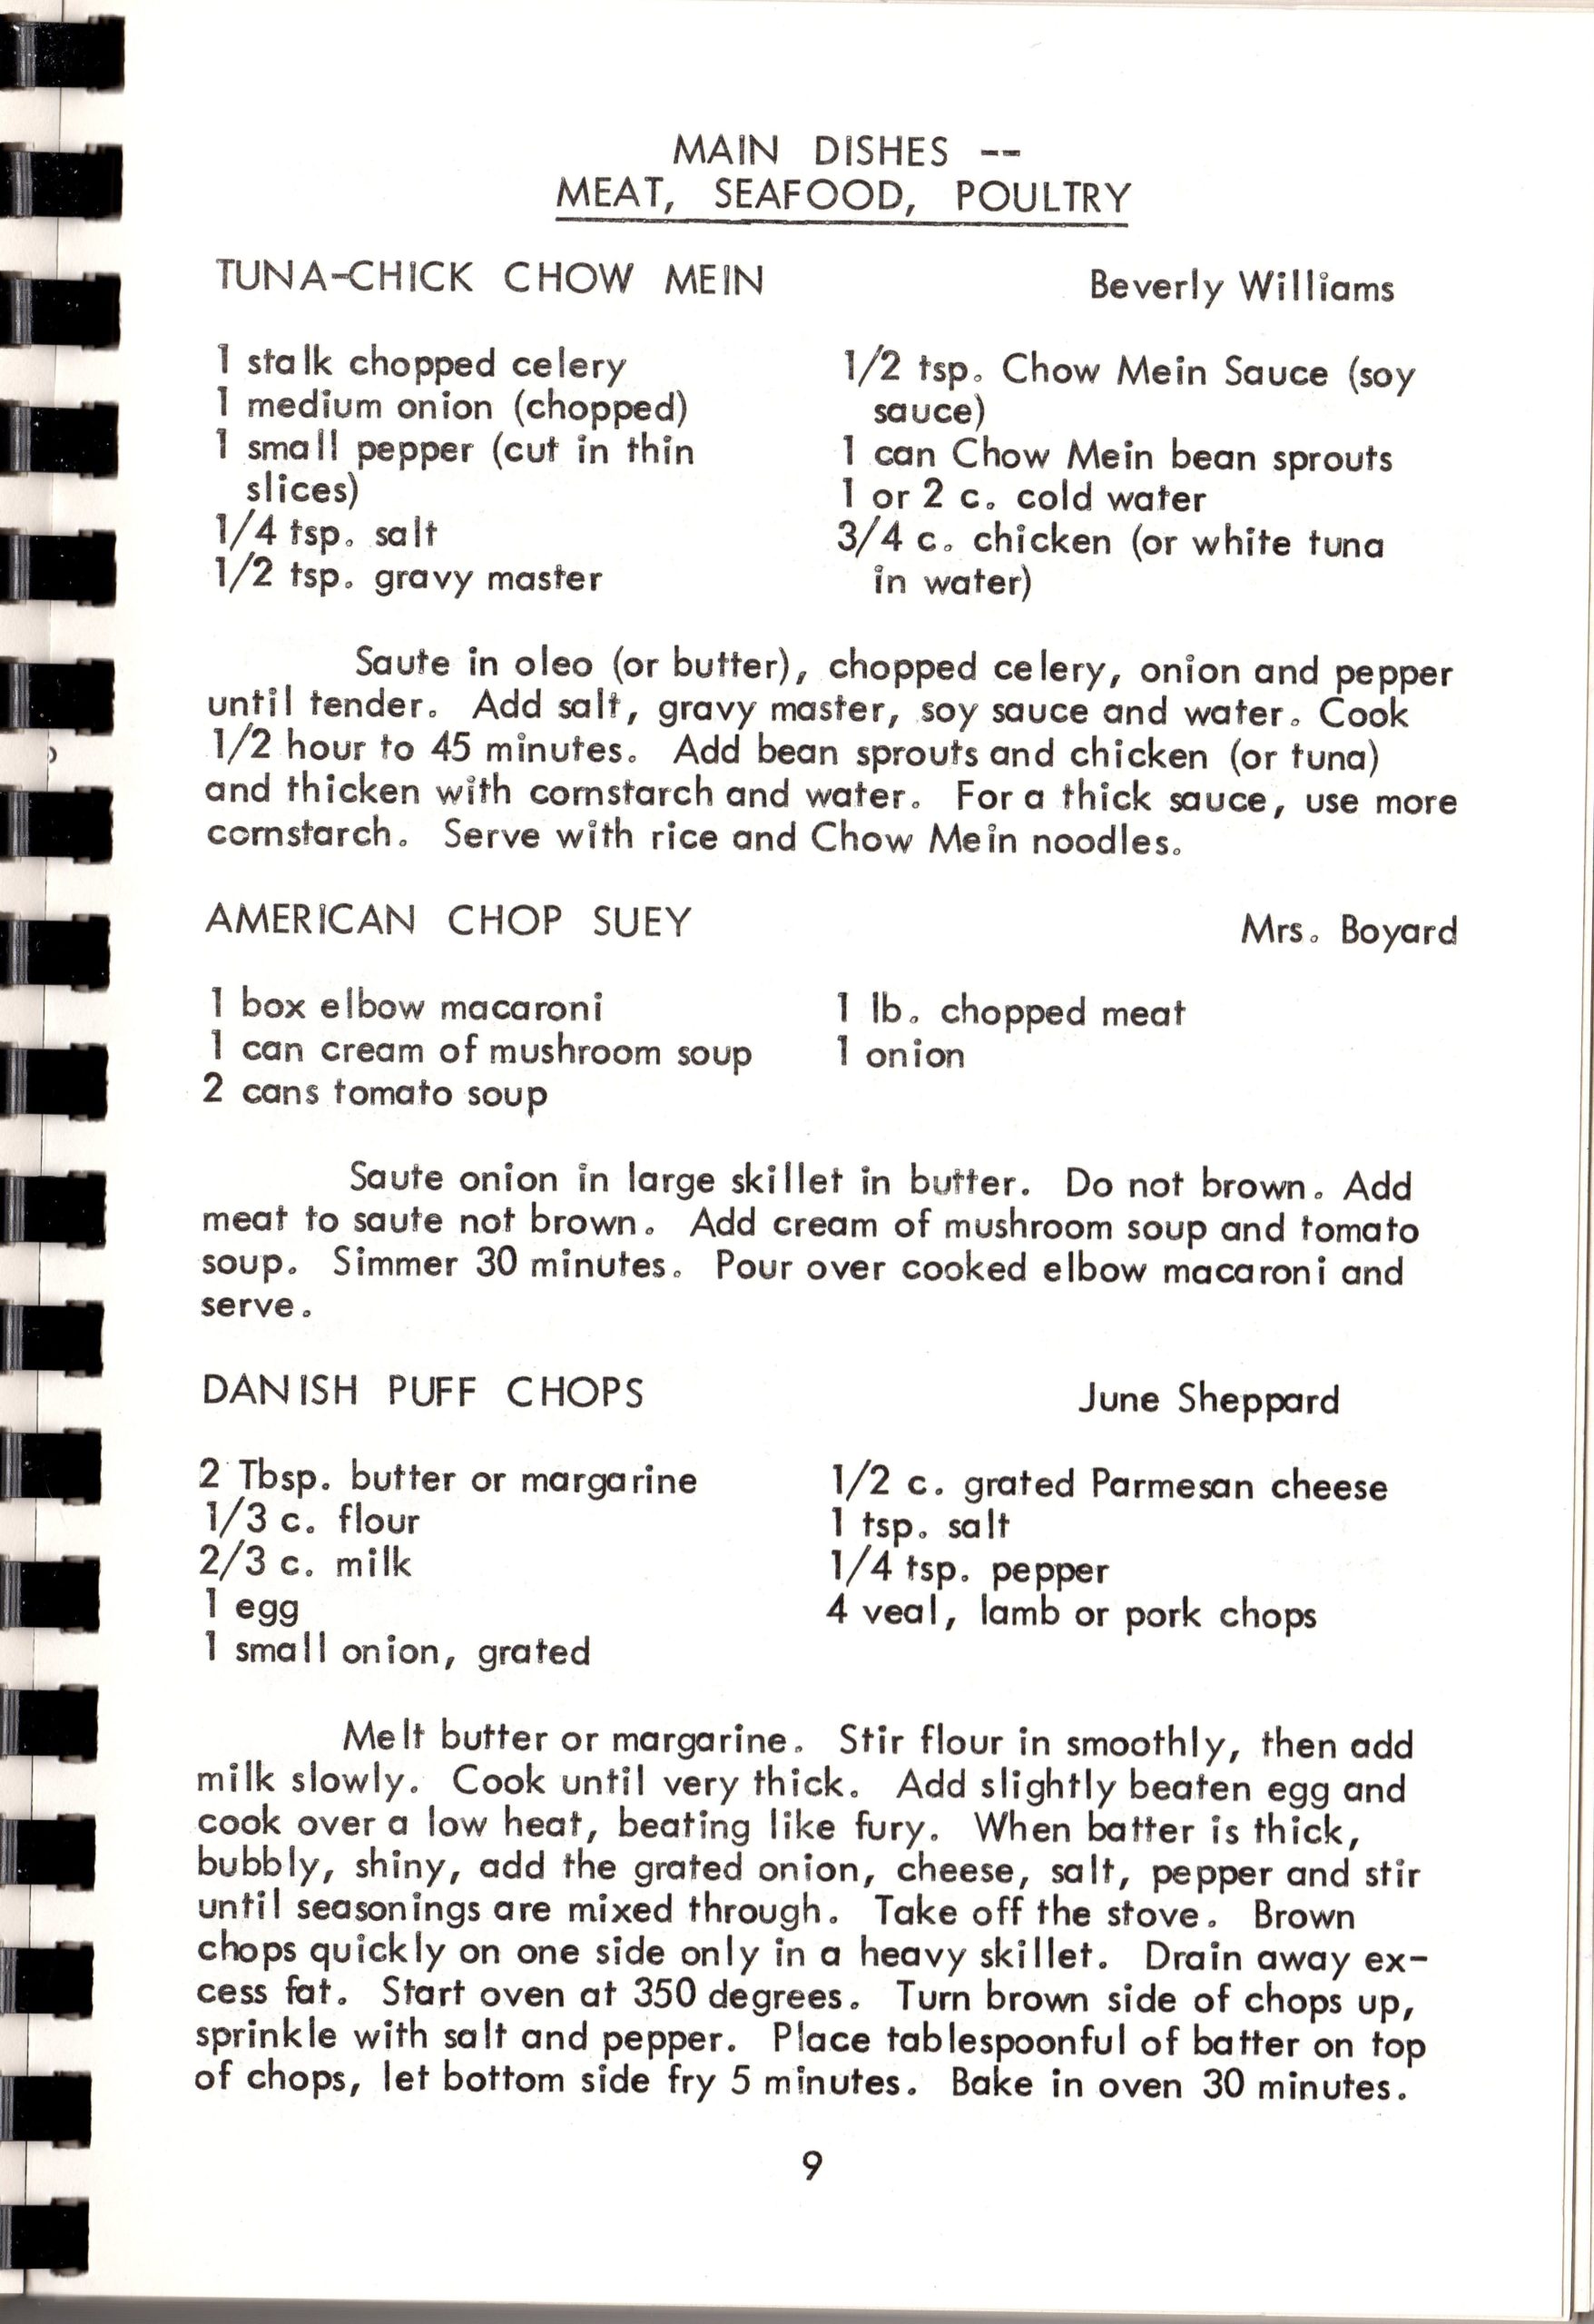 MAIN DISHES --
MEAT, SEAFOOD, POULTRY
TUNA-CHICK CHOW MEIN Beverly Williams
1 stalk chopped celery
1 medium onion (chopped)
1 small pepper (cut in thin
slices)
1/4 tsp. salt
1/2 tsp. gravy master
1/2 tsp. Chow Mein Sauce (soy
sauce)
1 can Chow Mein bean sprouts
1 or 2 c. cold water
3/4 c. chicken (or white tuna
in water)
Saute in oleo (or butter), chopped celery, onion and pepper
until tender. Add salt, gravy master, soy sauce and water. Cook
1/2 hour to 45 minutes. Add bean sprouts and chicken (or tuna)
and thicken with cornstarch and water. For a thick sauce, use more
cornstarch. Serve with rice and Chow Mein noodles.
AMERICAN CHOP SUEY Mrs. Boyard
1 box elbow macaroni
1 can cream of mushroom soup
2 cans tomato soup
1 lb. chopped meat
1 onion
Saute onion in large skillet in butter. Do not brown. Add
meat to saute not brown. Add cream of mushroom soup and tomato
soup. Simmer 30 minutes. Pour over cooked elbow macaroni and
serve.
DANISH PUFF CHOPS June Sheppard
2 Tbsp. butter or margarine
1/3 c. flour
2/3 c. milk
1 egg
1 small onion, grated
1/2 c. grated Parmesan cheese
1 tsp. salt
1/4 tsp. pepper
4 veal, lamb or pork chops
Melt butter or margarine. Stir flour in smoothly, then add
milk slowly. Cook until very thick. Add slightly beaten egg and
cook over a low heat, beating like fury. When batter is thick,
bubbly, shiny, add the grated onion, cheese, salt, pepper and stir
until seasonings are mixed through. Take off the stove. Brown
chops quickly on one side only in a heavy skillet. Drain away ex-
cess fat. Start oven at 350 degrees. Turn brown side of chops up,
sprinkle with salt and pepper. Place tablespoonful of batter on top
of chops, let bottom side fry 5 minutes. Bake in oven 30 minutes.
9